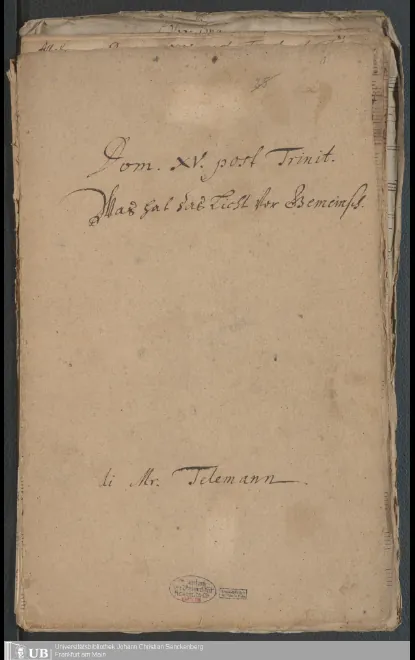 Dom. XV. post Trinit.
Was hat das Licht vor Gemeinsch.
di Mr. Telemann.
UB Universitätsbibliothek Johann Christian Senckenberg
Frankfurt am Main